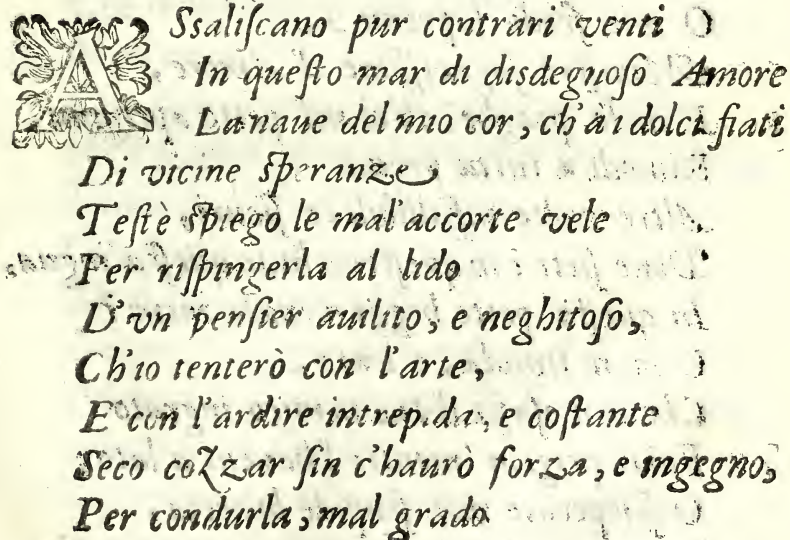 ASsaliſcano pur contrari venti
In queſto mar di disdegnoſo Amore
La naue del mio cor, ch'a i dolci fiati
Di vicine ſperanze
Teſtè ſpiegò le mal'accorte vele
Per riſpingerla al lido
D'vn penſier auilito, e neghitoſo,
Ch'io tenterò con l'arte,
E con l'ardire intrepida, e coſtante
Seco cozzar ſin c'haurò forza, e ingegno,
Per condurla, mal grado